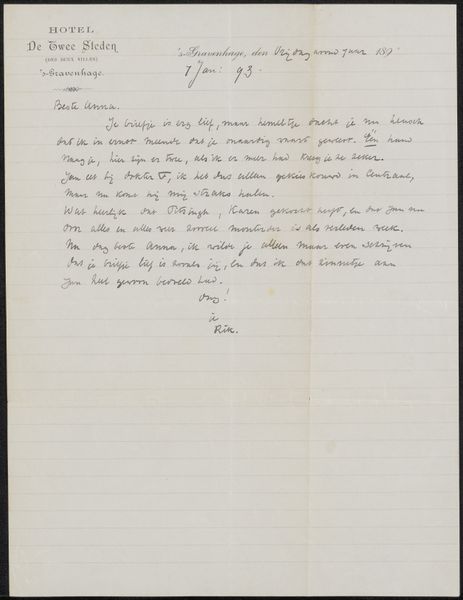 HOTEL
De Twee Steden
(DES DEUX VILLES)
's-Gravenhage.
's-Gravenhage, den Vrijdagavond 7 uur 189
7 Jan: 93.
Beste Anna.
Je briefje is erg lief, maar hemeltje dacht je nu heusch
dat ik in ernst meende dat je onaardig was geweest. Één hand
vraag je, hier zijn er twee, als ik er meer had kreeg je ze zeker.
Jan eet bij dokter T, ik heb dus alleen in Centraal,
maar nu komt hij mij straks halen.
Wat heerlijk dat Karen heeft, en dat Jan nu
over alles en alles veel is als verleden week.
Nu dag beste Anna, ik wilde je alleen maar even schrijven
dat je briefje lief is zooals jij, en dat ik dat aan
Jan heel gewoon had.
Dag!
je
Rik.